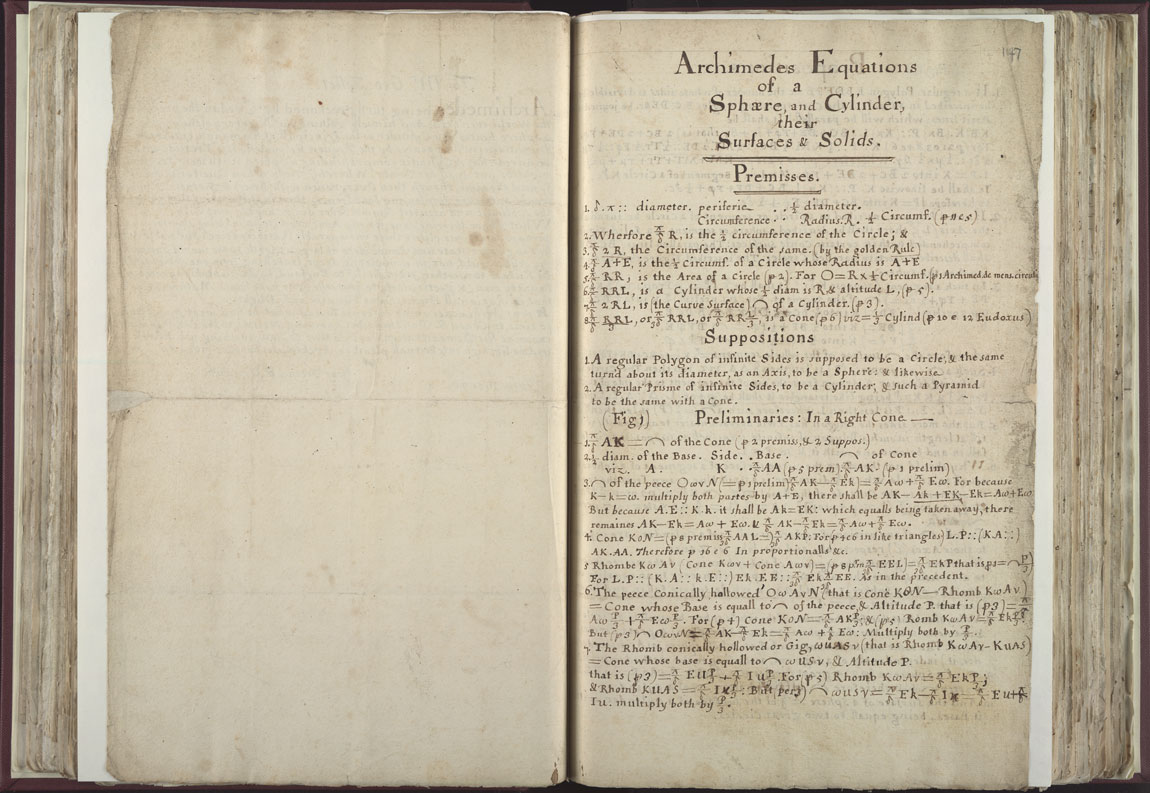 147
Archimedes Equations
of a
Sphære, and Cylinder,
their
Surfaces & Solids.
Premisses.
1. δ. π :: diameter. periferie . . ½ diameter.
Circumference . . Radius. R. ½ Circumf. (p 11 e 5)
2. Wherfore π/δ R, is the ½ circumference of the Circle; &
3. π/δ 2 R, the Circumference of the same. (by the golden Rule)
4. π/δ A+E, is the ½ Circumf. of a Circle whose Radius is A+E
5. π/δ RR, is the Area of a Circle (p 2). For O=R x ½ Circumf. (p 1 Archimed. de mens. circul
6. π/δ RRL, is a Cylinder whose ½ diam is R & altitude L, (p 5).
7. π/δ 2 RL, is (the Curve Surface) ⌒ of a Cylinder. (p 3).
8. π/δ RRL/3, or π/3δ RRL, or π/δ RR L/3, is a Cone (p 6) viz = ⅓ Cylind (p 10 e 12 Eudoxus)
Suppositions
1. A regular Polygon of infinite Sides is supposed to be a Circle, & the same
turnd about its diameter, as an Axis, to be a Sphere: & likewise
2. A regular Prisme of infinite Sides, to be a Cylinder; & such a Pyramid
to be the same with a Cone.
(Fig 1) Preliminaries: In a Right Cone
1. π/δ AK = ⌒ of the Cone (p 2 premiss, & 2 Suppos.)
2. ½ diam. of the Base. Side . . Base. ⌒ of Cone
viz. A. K . . π/δ AA (p 5 prem). π/δ AK. (p 1 prelim)
3. ⌒ of the peece OωνN (= p 1 prelim) π/δ AK − π/δ Ek) = π/δ Aω + π/δ Eω. For because
K−k=ω. multiply both partes by A+E, there shall be AK−Ak+EK−Ek=Aω+Eω
But because A.E :: K.k. it shall be Ak=EK: which equalls being taken away, there
remaines AK−Ek = Aω + Eω. & π/δ AK − π/δ Ek = π/δ Aω + π/δ Eω.
4. Cone KON = (p 8 premiss π/3δ AAL =) π/3δ AKP. For p 4 e 6 in like triangles) L.P :: (K.A ::)
AK.AA. Therefore p 16 e 6 In proportionalls &c.
5 Rhombe KωAν (Cone Kων + Cone Aων) = (p 8 prem π/3δ EEL) = π/3δ EkP that is p 3 = ⌒ P/3)
For L.P :: (K.A :: k.E ::) Ek.EE :: As in the precedent.
6. The peece Conically hollowed OωAνN (that is Cone KON − Rhomb KωAν)
= Cone whose Base is equall to ⌒ of the peece & Altitude P. that is (p 3) = π/δ
Aω P/3 + π/δ Eω P/3. For (p 4) Cone KON = π/δ AK P/3; & (p 5) Romb KωAν = π/δ Ek P/3.
But (p 3) ⌒ OωνN = π/δ AK − π/δ Ek = π/δ Aω + π/δ Eω: Multiply both by P/3.
7. The Rhomb conically hollowed or Gig, ωUASν (that is Rhomb KωAν − KUAS)
= Cone whose base is equall to ⌒ ωUSν, & Altitude P.
that is (p 3) = π/δ EU P/3 + π/δ IU P/3. For p 5) Rhomb KωAν = π/δ Ek P/3;
& Rhomb KUAS = : But per 3) ⌒ ωUSν = π/δ Ek −
IU. multiply both by P/3.